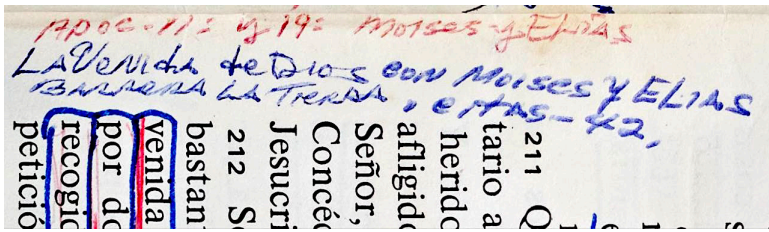 Apoc-11: y 19: Moises y ELIAS
LA VENida de Dios con Moises y ELIAS
BARRERA LA TIERRA.
211 Q
tario a
herido
afligido
Señor,
Concéd
Jesucri
212 S
bastan
venida
por do
recogid
petició